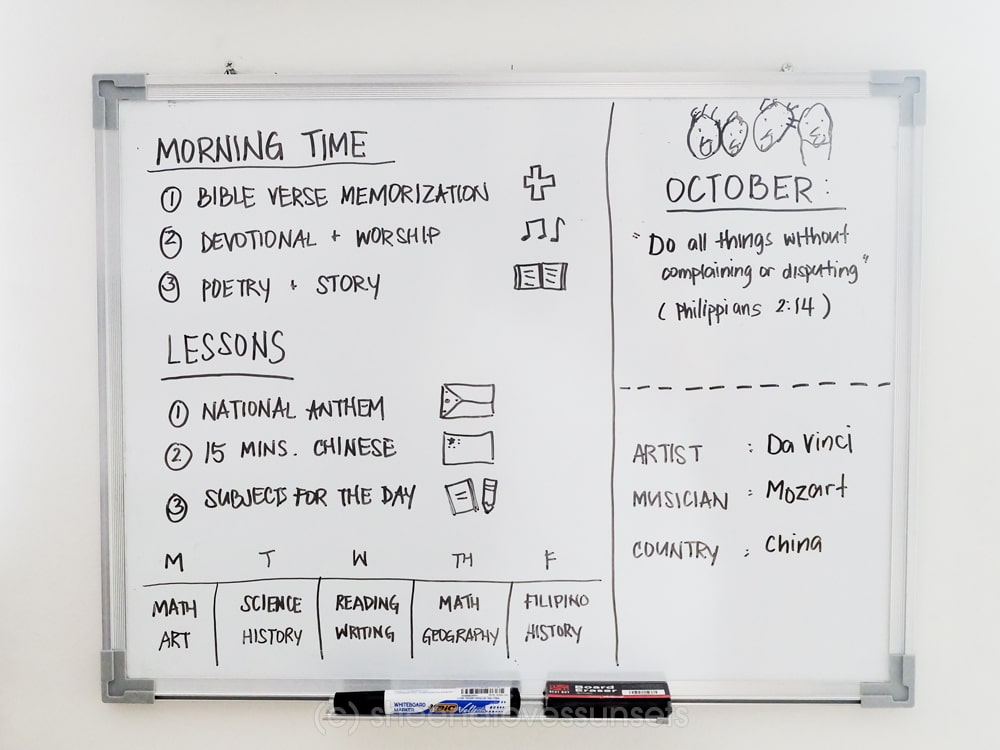 MORNING TIME
① BIBLE VERSE MEMORIZATION
② DEVOTIONAL + WORSHIP
③ POETRY + STORY
LESSONS
① NATIONAL ANTHEM
② 15 MINS. CHINESE
③ SUBJECTS FOR THE DAY
M T W TH F
MATH SCIENCE READING MATH FILIPINO
ART HISTORY WRITING GEOGRAPHY HISTORY
OCTOBER:
"Do all things without
complaining or disputing"
(Philippians 2:14)
ARTIST : Da Vinci
MUSICIAN : Mozart
COUNTRY : China
WHITEBOARD
MARKER
BIC Velleda
Board
Eraser
(c) sheenalovessunsets